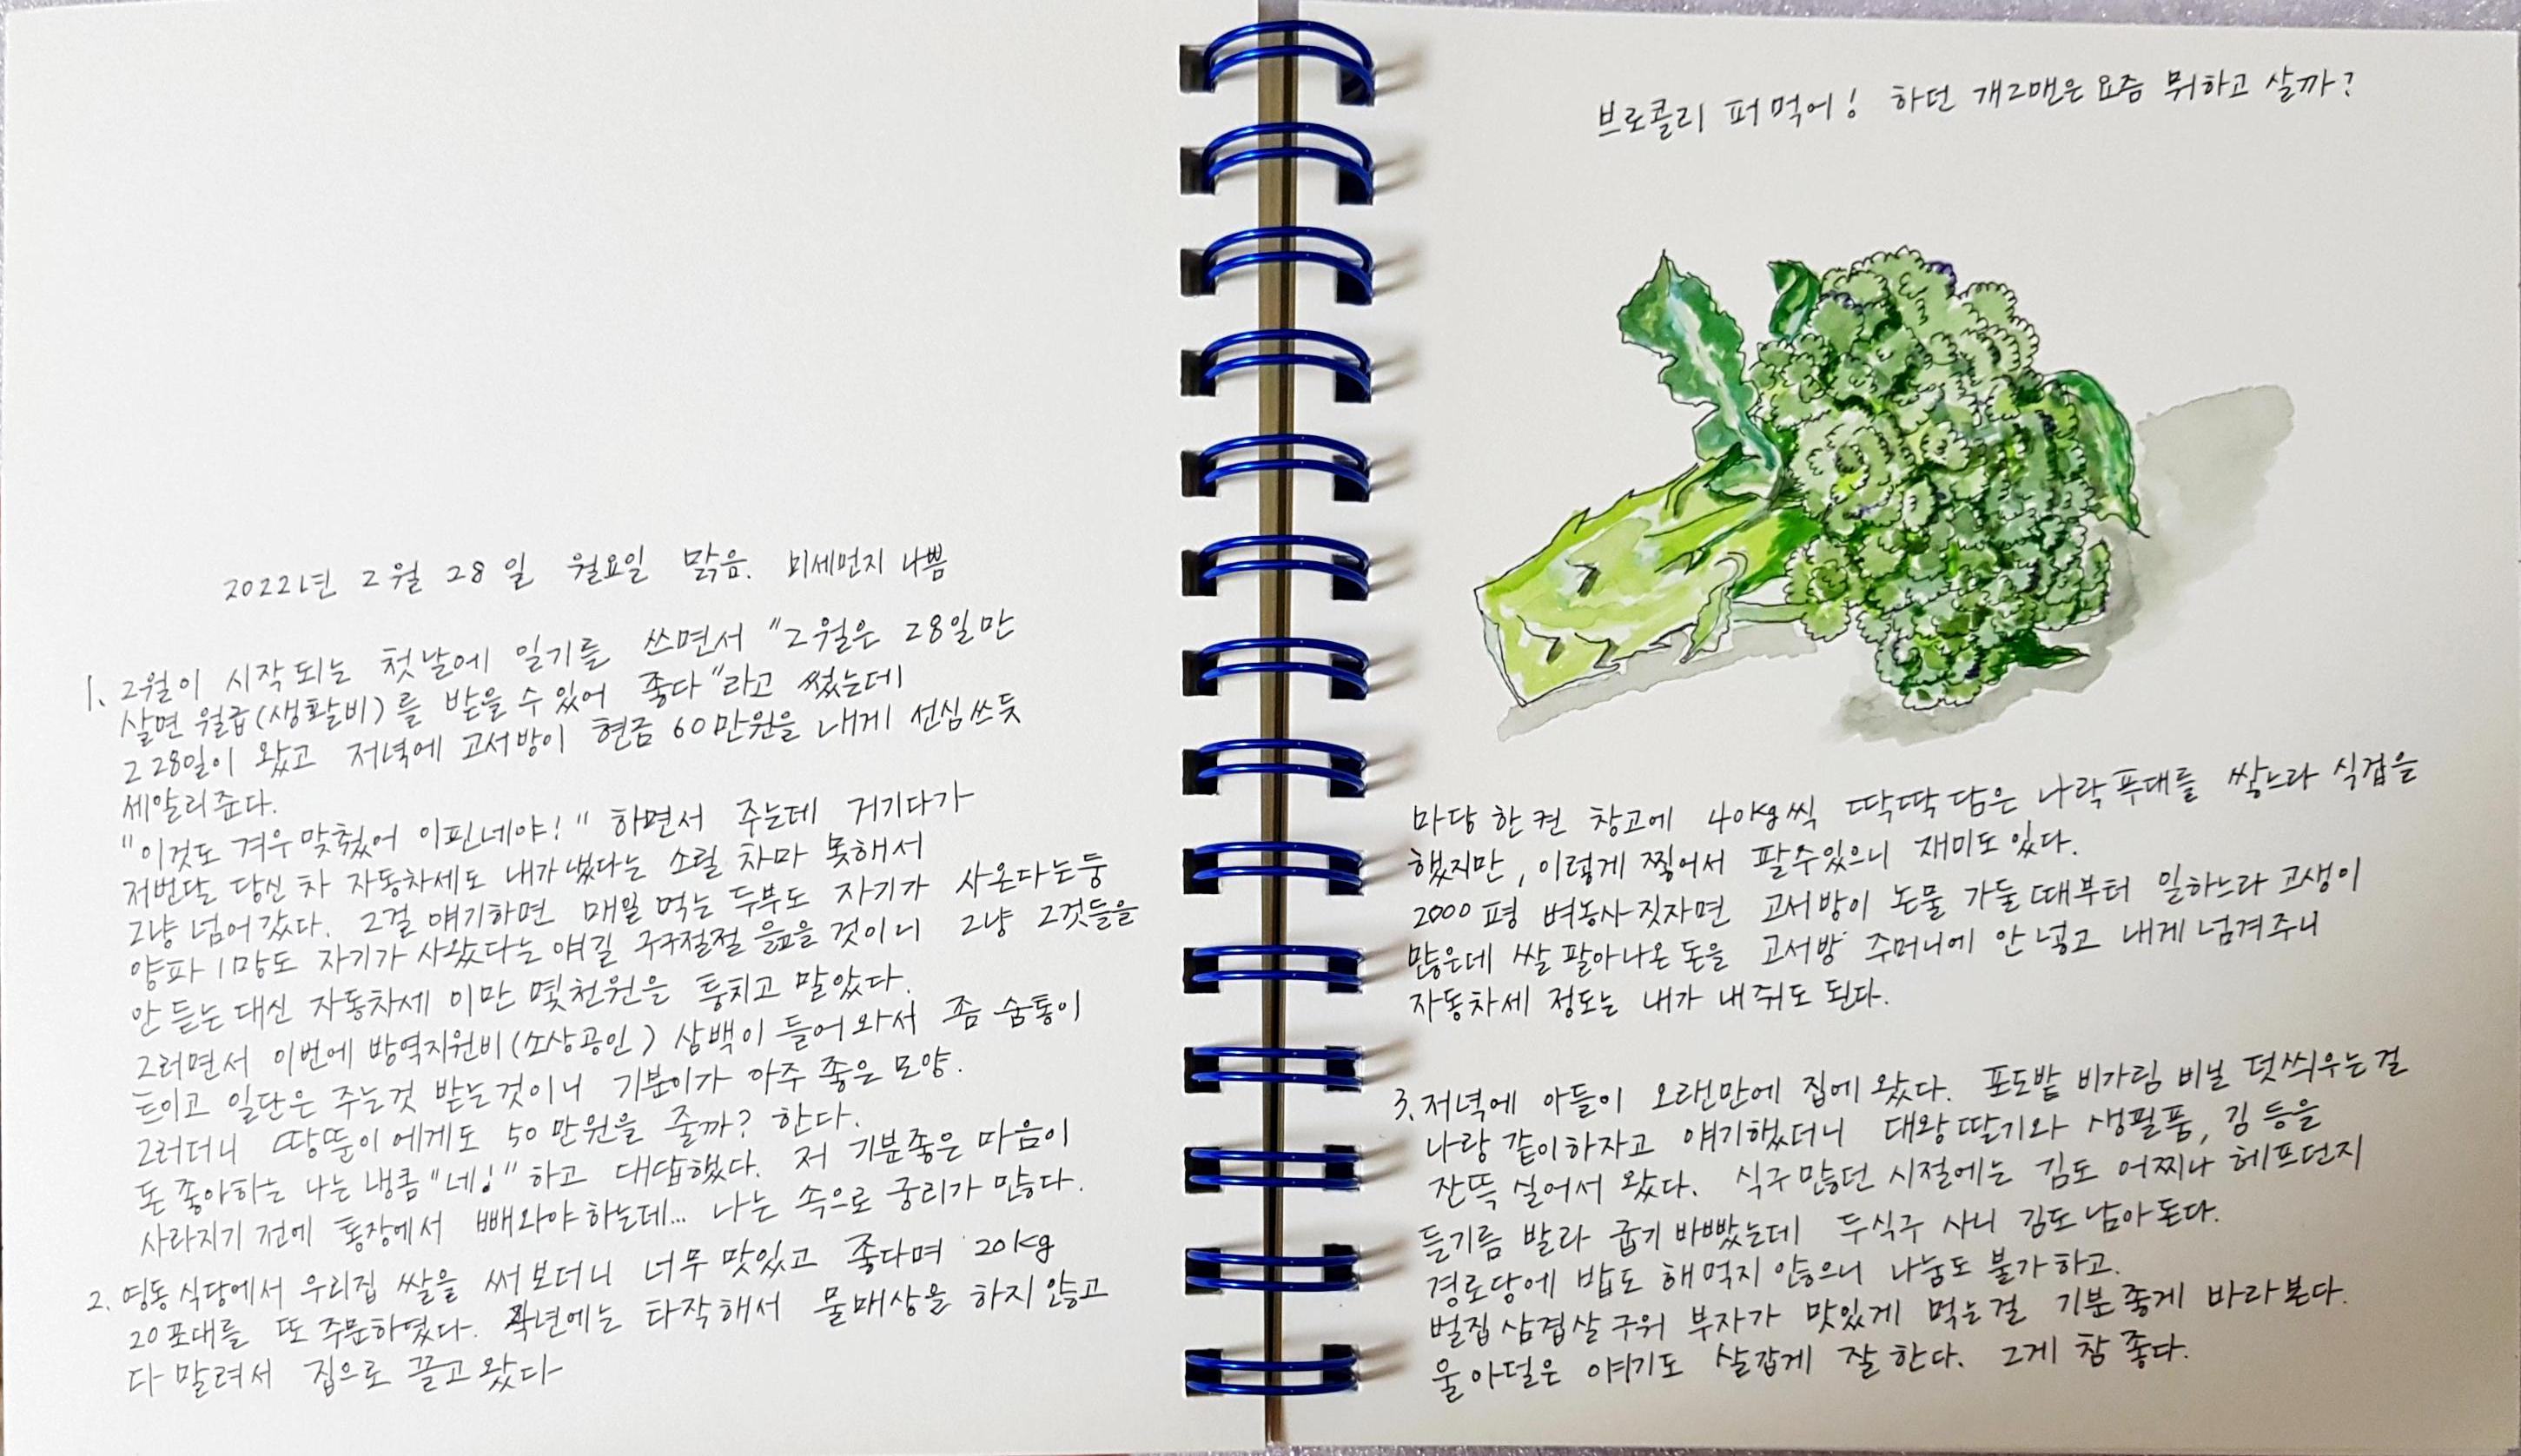 2022년 2월 28일 월요일 맑음. 미세먼지 나쁨
1. 2월이 시작되는 첫날에 일기를 쓰면서 "2월은 28일만
살면 월급(생활비)를 받을 수 있어 좋다"라고 썼는데
그 28일이 왔고 저녁에 고서방이 현금 60만원을 내게 선심쓰듯
세알리준다.
"이것도 겨우 맞췄어 이핀네야!" 하면서 주는데 거기다가
저번달 당신 차 자동차세도 내가 냈다는 소릴 차마 못해서
그냥 넘어갔다. 그걸 얘기하면 매일 먹는 두부도 자기가 사온다는둥
양파 1망도 자기가 사왔다는 얘길 구구절절 읊을 것이니 그냥 그것들을
안 듣는 대신 자동차세 이만 몇천원을 퉁치고 말았다.
그러면서 이번에 방역지원비(소상공인) 삼백이 들어와서 좀 숨통이
트이고 일단은 주는것 받는것이니 기분이가 아주 좋은 모양.
그러더니 땅뚤이에게도 50만원을 줄까? 한다.
돈 좋아하는 나는 냉큼 "네!" 하고 대답했다. 저 기분좋은 마음이
사라지기 전에 통장에서 빼와야 하는데... 나는 속으로 궁리가 많다.
2. 영동식당에서 우리집 쌀을 써보더니 너무 맛있고 좋다며 20kg
20포대를 또 주문하였다. 작년에는 타작해서 물매상을 하지 않고
다 말려서 집으로 끌고 왔다
브로콜리 퍼먹어! 하던 개그맨은 요즘 뭐하고 살까?
마당 한켠 창고에 40kg씩 딱딱 담은 나락푸대를 쌓느라 식겁을
했지만, 이렇게 찧어서 팔수있으니 재미도 있다.
2000평 벼농사 짓자면 고서방이 논물 가둘때부터 일하느라 고생이
많은데 쌀 팔아나온 돈을 고서방 주머니에 안 넣고 내게 넘겨주니
자동차세 정도는 내가 내줘도 된다.
3. 저녁에 아들이 오랜만에 집에 왔다. 포도밭 비가림 비닐 덧씌우는걸
나랑 같이하자고 얘기했더니 대왕딸기와 생필품, 김 등을
잔뜩 실어서 왔다. 식구많던 시절에는 김도 어찌나 헤프던지
들기름 발라 굽기 바빴는데 두식구 사니 김도 남아돈다.
경로당에 밥도 해먹지 않으니 나눔도 불가하고.
벌집삼겹살 구워 부자가 맛있게 먹는걸 기분좋게 바라본다.
울아덜은 얘기도 살갑게 잘 한다. 그게 참 좋다.